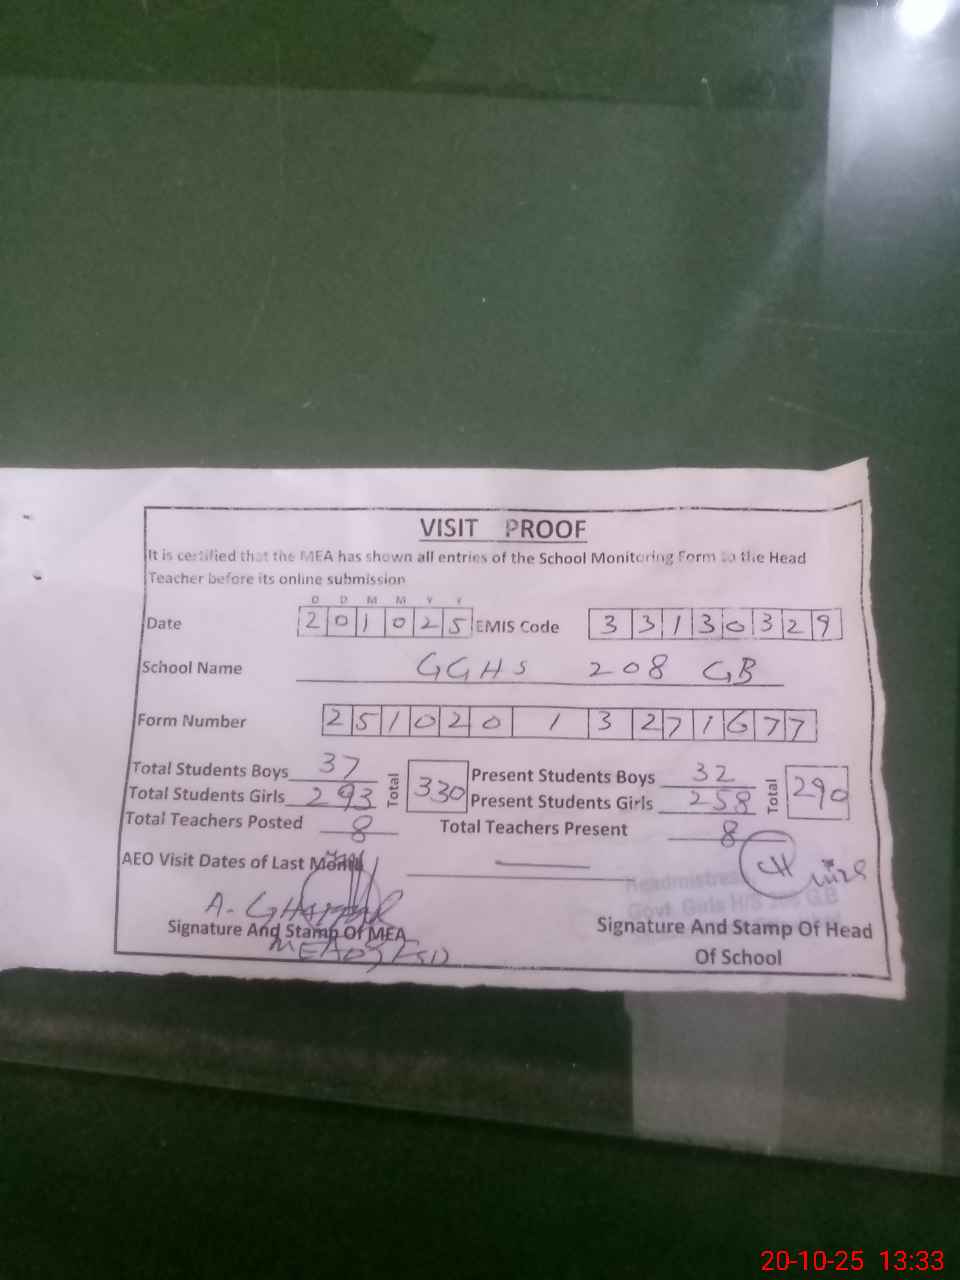 VISIT PROOF
It is certified that the MEA has shown all entries of the School Monitoring Form to the Head
Teacher before its online submission
D D M M Y Y
Date 2 0 1 0 2 5 EMIS Code 3 3 1 3 0 3 2 9
School Name GGHS 208 GB
Form Number 2 5 1 0 2 0 1 3 2 7 1 6 7 7
Total Students Boys 37 Total 330 Present Students Boys 32 Total 290
Total Students Girls 293 Present Students Girls 258
Total Teachers Posted 8 Total Teachers Present 8
AEO Visit Dates of Last Month —
Headmistress
Govt. Girls H/S G.B
A. GHAFFAR
Signature And Stamp Of MEA Signature And Stamp Of Head
Of School
MEA 03 FSD
20-10-25 13:33